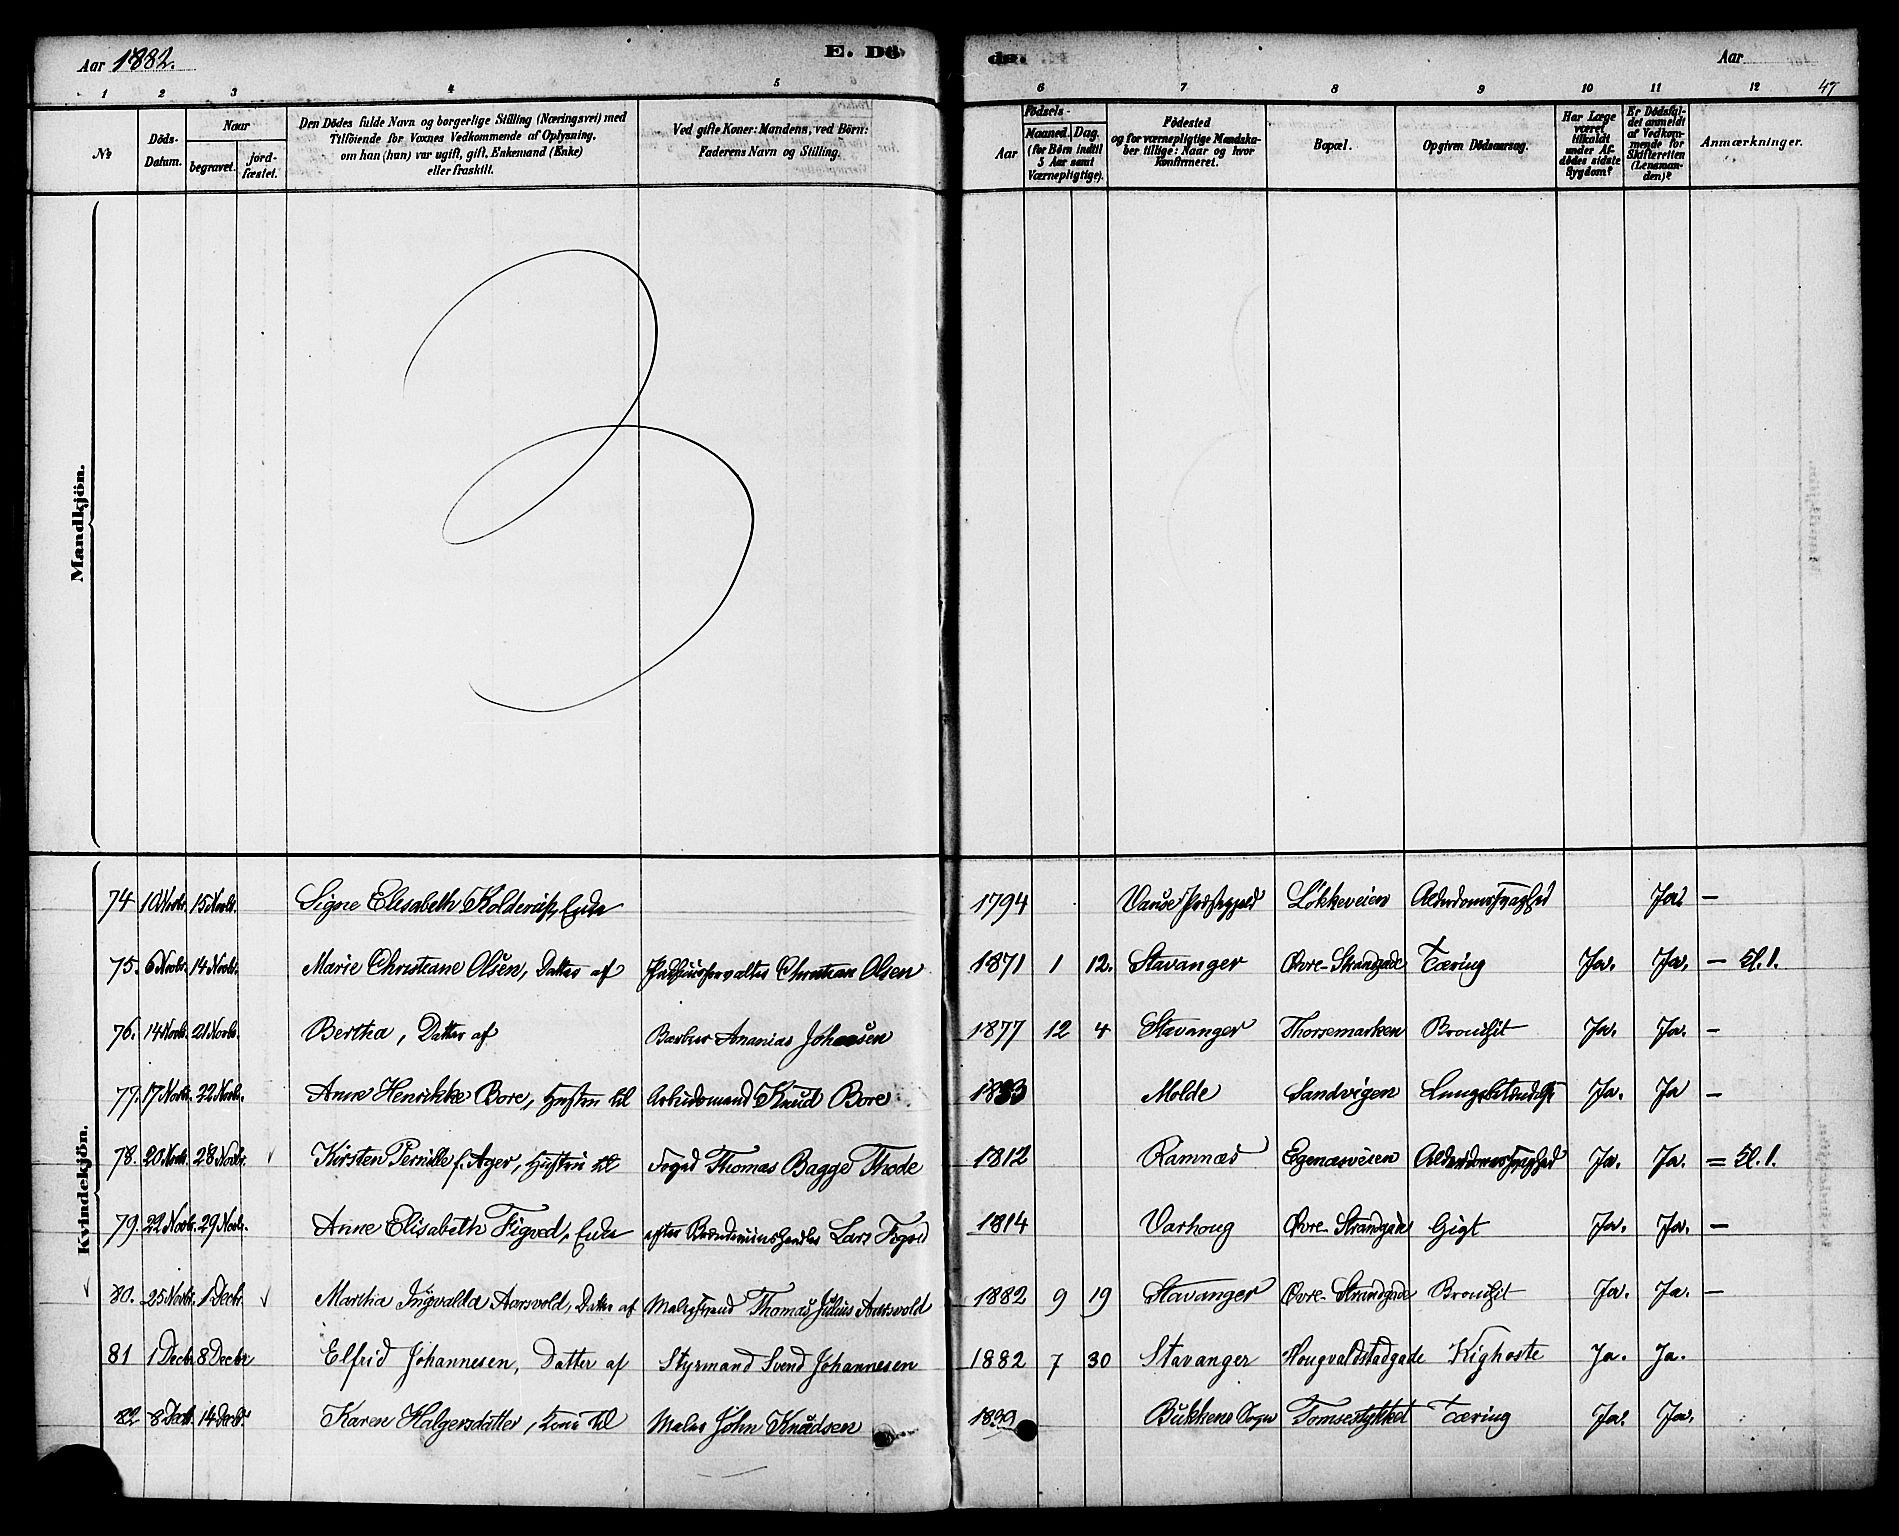 Aar 1882.
E. Dö-
de.
Aar
47
1 2 3 4 5 6 7 8 9 10 11 12
№
Döds-Datum.
Naar
begravet.
jord-fæstet.
Den Dödes fulde Navn og borgerlige Stilling (Næringsvei) med
Tilföiende for Voxnes Vedkommende af Oplysning,
om han (hun) var ugift, gift, Enkemand (Enke)
eller fraskilt.
Ved gifte Koner: Mandens, ved Börn:
Faderens Navn og Stilling.
Födsels-
Aar
Maaned. Dag.
(for Börn indtil
5 Aar samt
Værnepligtige).
Födested
og for værnepligtige Mandska-
ber tillige: Naar og hvor
konfirmeret.
Bopæl.
Opgiven Dödsaarsag.
Har Læge
været
tilkaldt
under Af-
dödes sidste
Sygdom?
Er Dödsfal-
det anmeldt
af Vedkom-
mende for
Skifteretten
(Lensman-
den)?
Anmærkninger.
Mandkjön.
Kvindekjön.
74 10 Novbr. 15 Novbr. Signe Elisabeth Kolderup, Enke 1794 Vanse Præstegjeld Løkkeveien Alderdomssvaghed Ja. —
75. 6 Novbr. 14 Novbr. Marie Christiane Olsen, Datter af Christian Olsen 1871 1 12. Stavanger Øvre-Strandgade Tæring Ja. Ja. — Kl. 1.
76. 14 Novbr. 21 Novbr. Bertha, Datter af Barber Ananias Johnsen 1877 12 4 Stavanger Thorsemarken Bronchit Ja. Ja. —
77. 17 Novbr. 22 Novbr. Anne Henrikke Bore, Hustru til Arbeidsmand Knud Bore 1833 Molde Sandvigen Lungebetændelse Ja. Ja —
78. 20 Novbr. 28 Novbr. √ Kirsten Pernille f. Ager, Hustru til Foged Thomas Bagge Thode 1812 Ramnæs Egenæsveien Alderdomssvaghed Ja. Ja. = Kl. 1.
79. 22 Novbr. 29 Novbr. Anne Elisabeth Figved, Enke efter Lars Figved 1814 Varhoug Øvre-Strandgade Gigt Ja. Ja. —
√ 80. 25 Novbr. 1 Decbr. √ Martha Ingvalda Aarsvold, Datter af Thomas Julius Aarsvold 1882 9 19 Stavanger Øvre-Strandgade Bronchit Ja. Ja. —
81 1 Decbr. 8 Decbr Elfrid Johannesen, Datter af Styrmand Svend Johannesen 1882 7 30 Stavanger Hougvaldstadgade Kighoste Ja. Ja.
82 8 Decbr. 14 Decbr Karen Halgersdatter, Kone til Maler John Knudsen Bukkens Sogn Tomsestykket Tæring Ja. Ja.